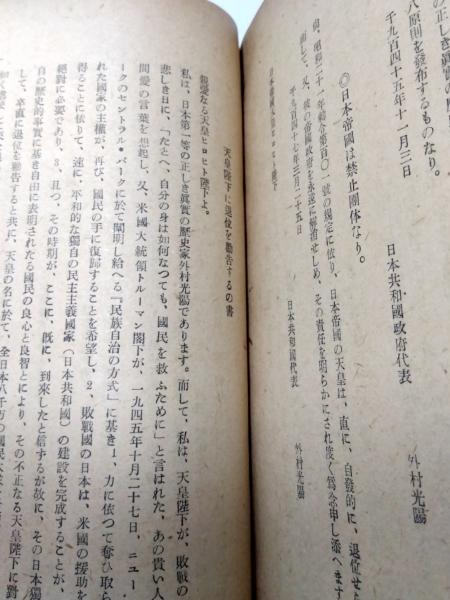 の正しき眞實の歷史
八原則を發布するものなり。
千九百四十五年十一月三日
日本共和國政府代表 外村光陽
◎日本帝國は禁止團體なり。
尙、昭和二十一年勅令第百一號の規定に依り、日本帝國の天皇は、直に、自發的に、退位せ
而して、又、彼の帝國政府を永遠に解消せしめ、その責任を明らかにされ度く爲念申し添へます
千九百四十七年三月二十五日
日本共和國代表 外村光陽
日本帝國天皇ヒロヒト陛下
天皇陛下に退位を勸告するの書
親愛なる天皇ヒロヒト陛下よ。
私は、日本第一等の正しき眞實の歷史家外村光陽であります。而して、私は、天皇陛下が、敗戰の
悲しき日に、「たとへ、自分の身は如何なつても、國民を救ふために」と言はれた、あの貴い人
間愛の言葉を想起し、又、米國大統領トルーマン閣下が、一九四五年十月二十七日、ニユー・
ークのセントラル・パークに於て聞明し給へる『民族自治の方式』に基き1、力に依つて奪ひ取ら
れた國家の主權が、再び、國民の手に復歸することを希望し、2、敗戰國の日本は、米國の援助を
得ることに依りて、速に、平和的な獨自の民主主義國家(日本共和國)の建設を完成することが、
絕對に必要であり、3、且つ、その時期が、ここに、既に、到來したと信ずるが故に、その日本獨
自の歷史的事實に基き自由に表明されたる國民の良心と良智とにより、その不正なる天皇陛下に對
して、卒直に退位を勸告すると共に、天皇の名に於て、全日本八千万の國民